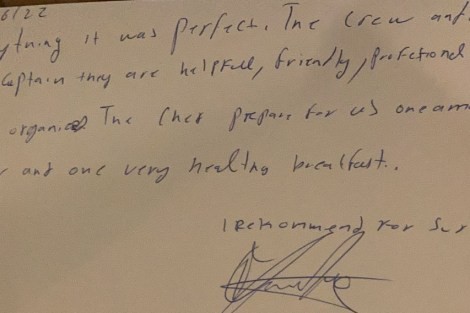 6/22
ything it was perfect. The crew and
captain they are helpfull, friendly, profetional
organiced. The Chef prepare for us one am
and one very healthy breakfast..
I rekommend for sur